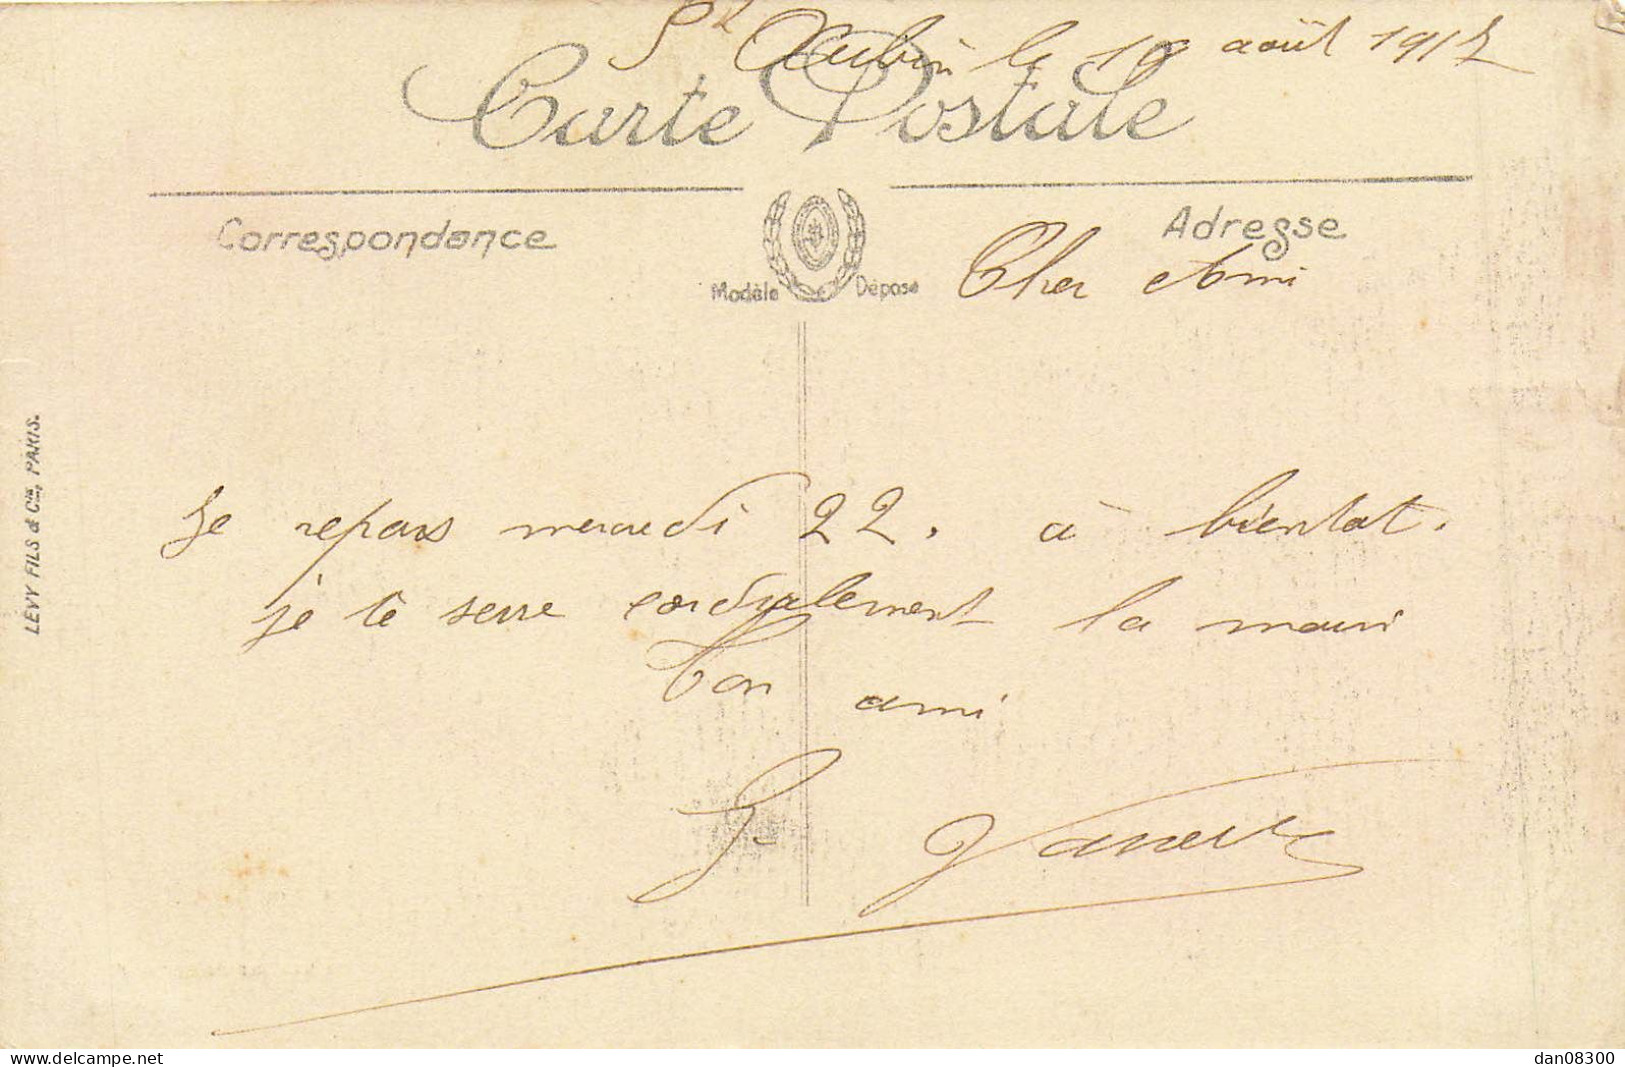 St Aubin le 19 août 1917
Carte Postale
Correspondance
Adresse
Modèle Déposé
Cher Ami
LEVY FILS & Cie, PARIS.
Je repars mercredi 22. à bientot.
je te serre cordialement la main
Ton ami
G.
www.delcampe.net
dan08300